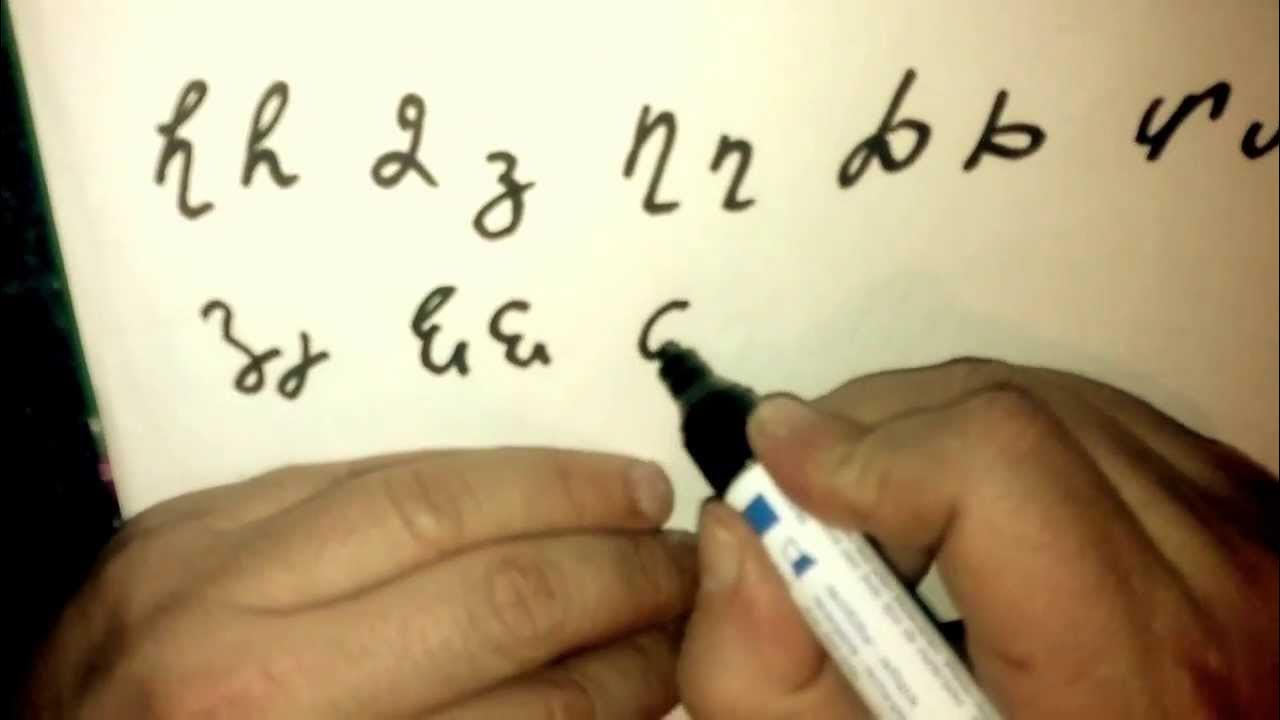 Հ հ Ձ ձ Ղ ղ Ճ ճ Մ
Յ յ Ն ն